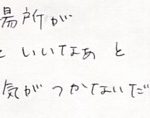 場所が
と いいなあ と
気が つかないだ